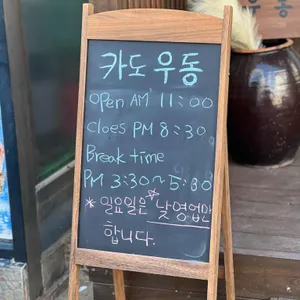 카도 우동
Open AM 11:00
Cloes PM 8:30
Break time
PM 3:30~5:30
* 일요일은 낮영업만
합니다.